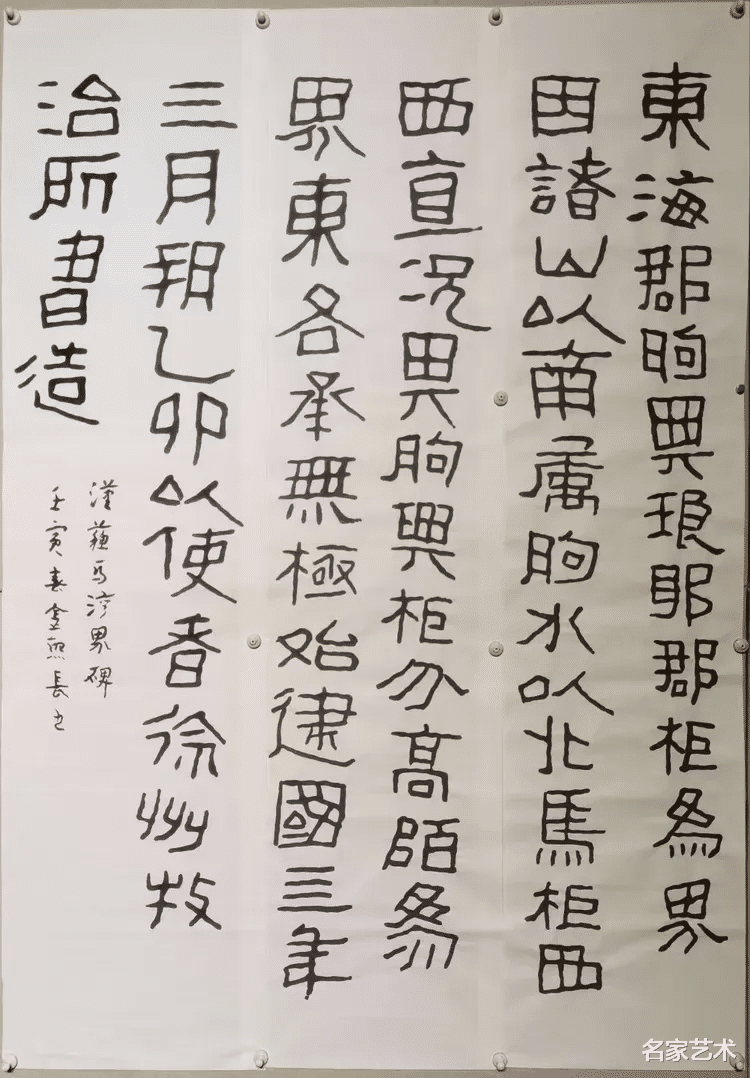 東海郡朐與琅耶郡柜為界
因諸山以南属朐水以北馬柜西
西直況其朐與柜分高陌為
界東各承無極始建國三年
三月朔乙卯以使者徐州牧
治所書造
漢蘇馬灣界碑
壬寅春熙長
名家艺术